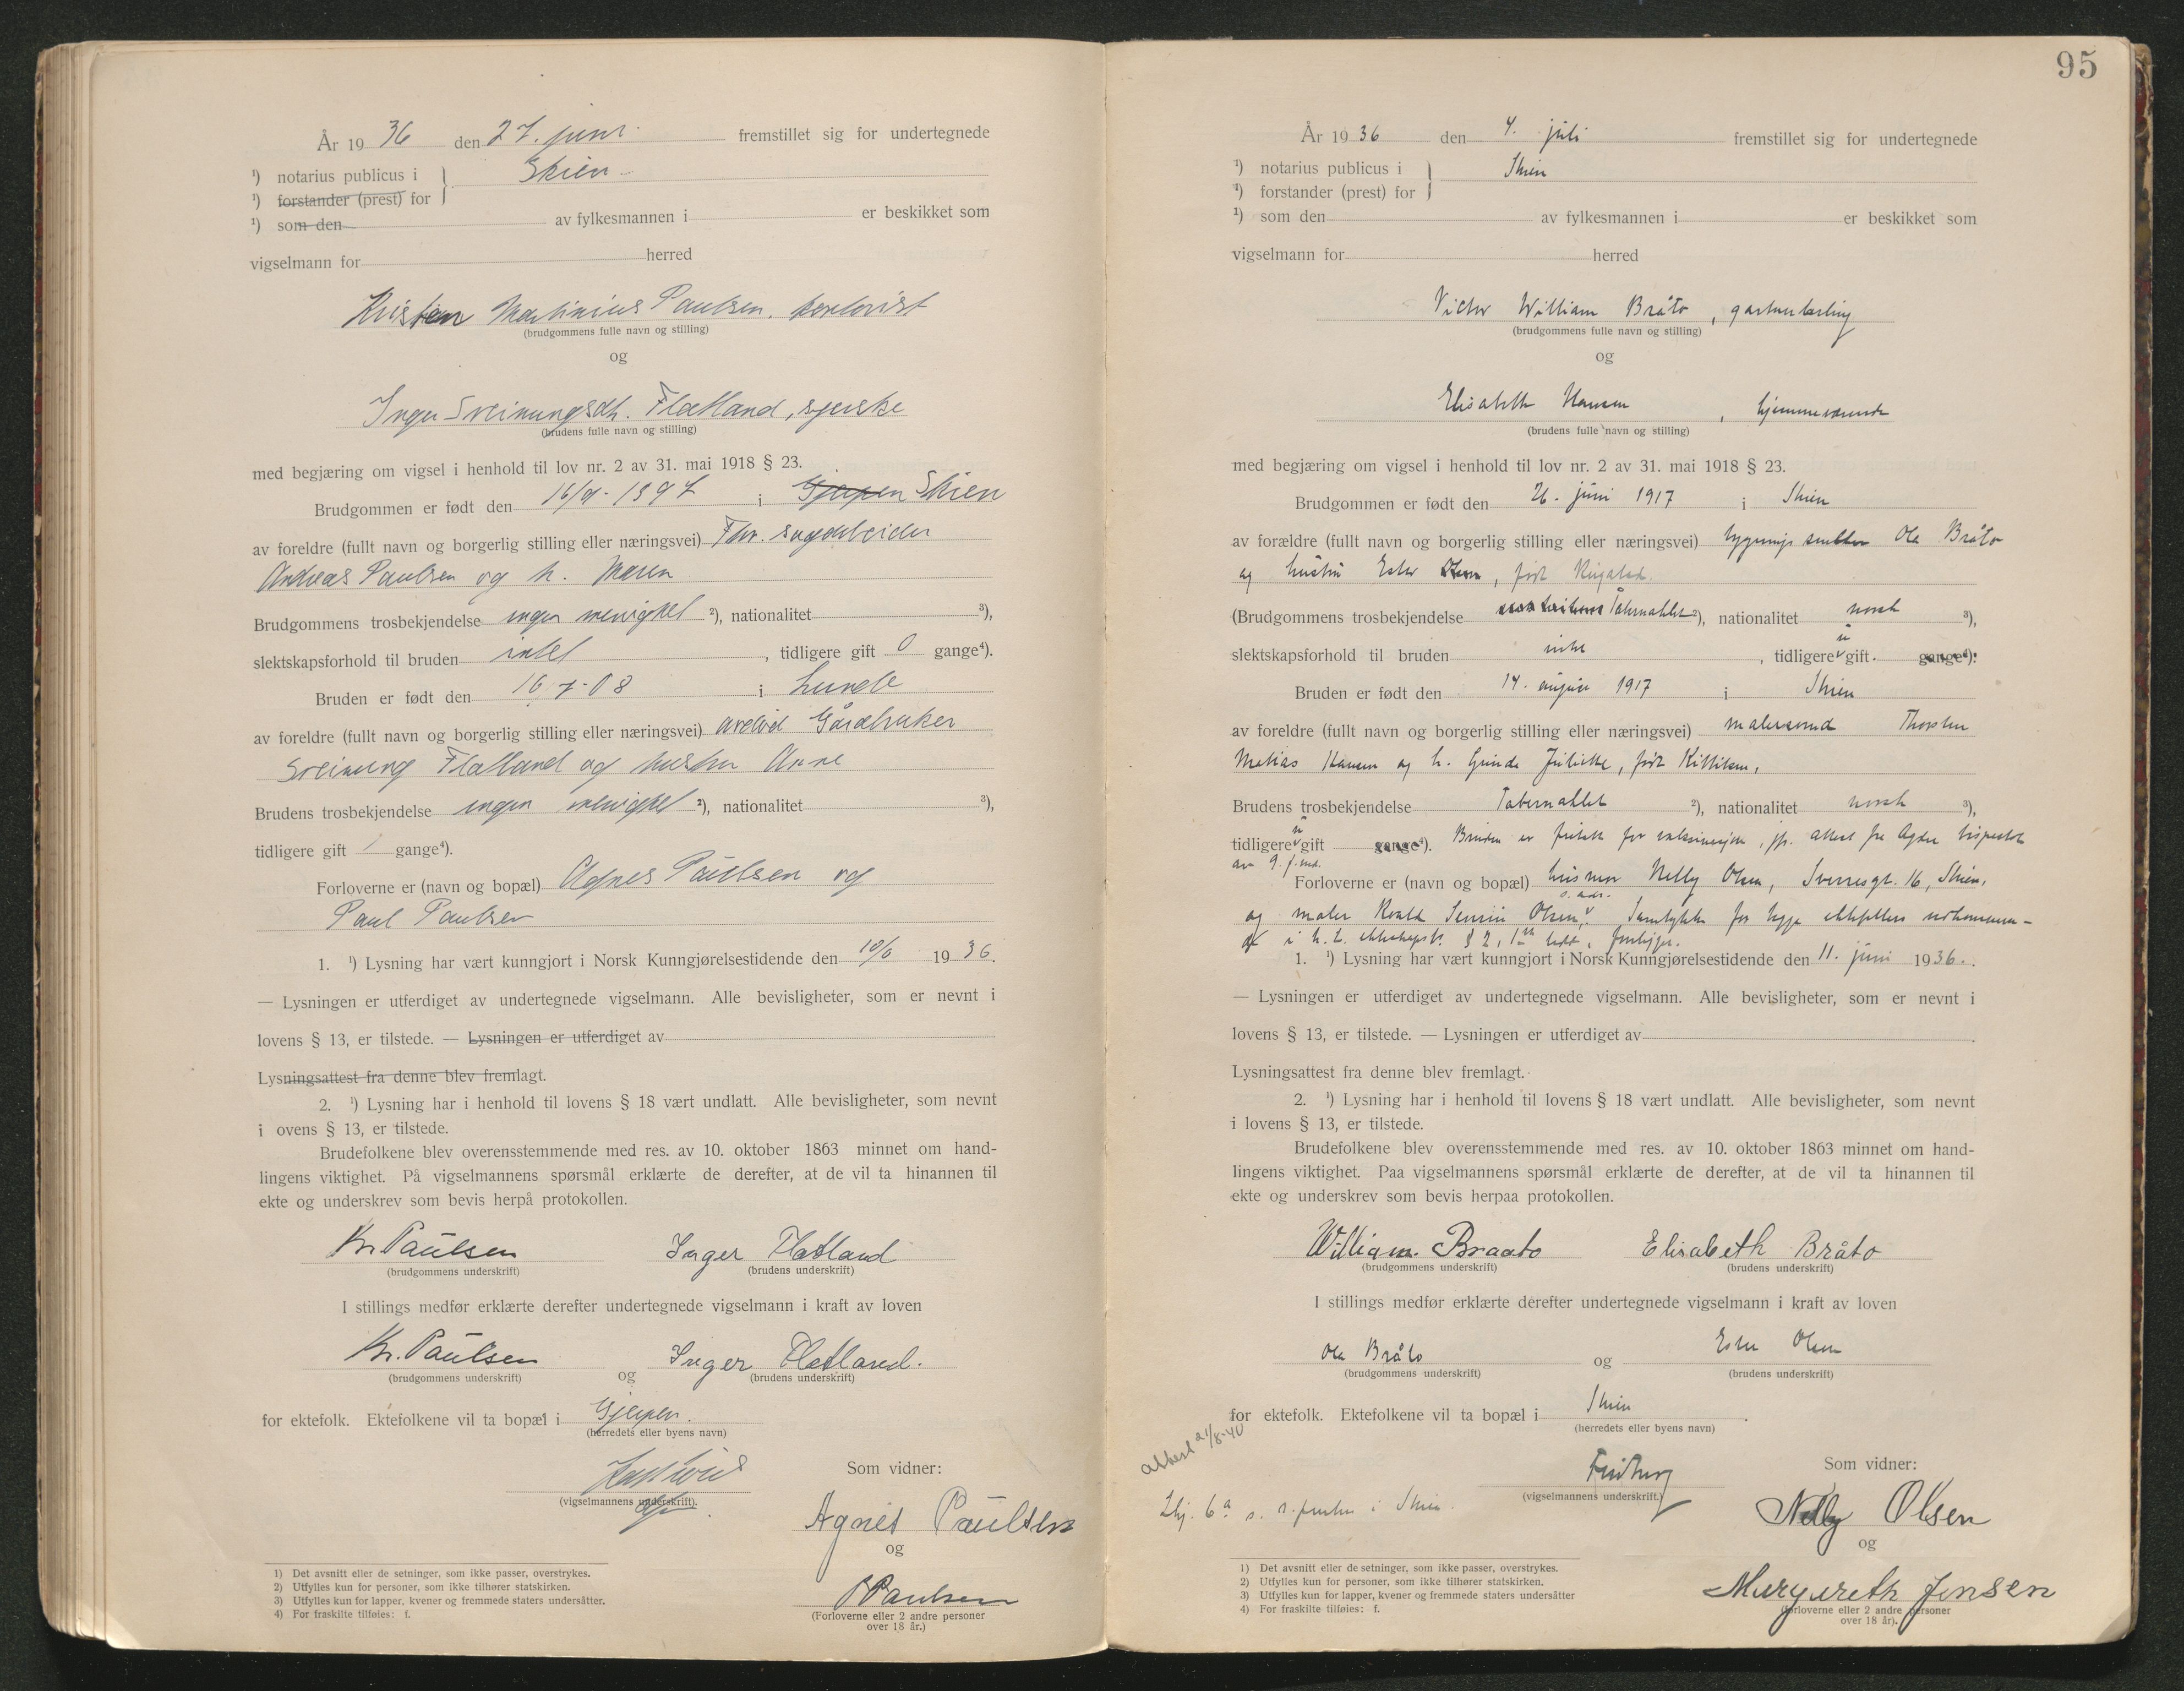 År 1936 den 27. juni fremstillet sig for undertegnede
¹) notarius publicus i Skien
¹) forstander (prest) for
¹) som den av fylkesmannen i er beskikket som
vigselmann for herred
Kristen Martinius Paulsen,
(brudgommens fulle navn og stilling)
og
Inger Sveinungsdtr. Flatland, syerske
(brudens fulle navn og stilling)
med begjæring om vigsel i henhold til lov nr. 2 av 31. mai 1918 § 23.
Brudgommen er født den 1897 i Gjerpen Skien
av foreldre (fullt navn og borgerlig stilling eller næringsvei) Fhv. sagarbeider
Andreas Paulsen og h. Maren
Brudgommens trosbekjendelse ingen menighet ²), nationalitet ³),
slektskapsforhold til bruden intet, tidligere gift 0 gange⁴).
Bruden er født den 16.7-08 i Lunde
av foreldre (fullt navn og borgerlig stilling eller næringsvei) avdød Gårdbruker
Sveinung Flatland og hustru Anne
Brudens trosbekjendelse ingen menighet ²), nationalitet ³),
tidligere gift / gange⁴).
Forloverne er (navn og bopæl) Agnes Paulsen og
Paul Paulsen
1. ¹) Lysning har vært kunngjort i Norsk Kunngjørelsestidende den 10/6 1936.
— Lysningen er utferdiget av undertegnede vigselmann. Alle bevisligheter, som er nevnt i
lovens § 13, er tilstede. — Lysningen er utferdiget av
Lysningsattest fra denne blev fremlagt.
2. ¹) Lysning har i henhold til lovens § 18 vært undlatt. Alle bevisligheter, som nevnt
i ovens § 13, er tilstede.
Brudefolkene blev overensstemmende med res. av 10. oktober 1863 minnet om hand-
lingens viktighet. På vigselmannens spørsmål erklærte de derefter, at de vil ta hinannen til
ekte og underskrev som bevis herpå protokollen.
Kr. Paulsen Inger Flatland
(brudgommens underskrift) (brudens underskrift)
I stillings medfør erklærte derefter undertegnede vigselmann i kraft av loven
Kr. Paulsen og Inger Flatland.
(brudgommens underskrift) (brudens underskrift)
for ektefolk. Ektefolkene vil ta bopæl i Gjerpen.
(herredets eller byens navn)
Som vidner:
(vigselmannens underskrift).
Agnes Paulsen
og
Paulsen
(Forloverne eller 2 andre personer
over 18 år.)
1) Det avsnitt eller de setninger, som ikke passer, overstrykes.
2) Utfylles kun for personer, som ikke tilhører statskirken.
3) Utfylles kun for lapper, kvener og fremmede staters undersåtter.
4) For fraskilte tilføies: f.
95
År 1936 den 4. juli fremstillet sig for undertegnede
¹) notarius publicus i Skien
¹) forstander (prest) for
¹) som den av fylkesmannen i er beskikket som
vigselmann for herred
Victor William Bråto, gartnerlærling
(brudgommens fulle navn og stilling)
og
Elisabeth Hansen, hjemmeværende
(brudens fulle navn og stilling)
med begjæring om vigsel i henhold til lov nr. 2 av 31. mai 1918 § 23.
Brudgommen er født den 26. juni 1917 i Skien
av forældre (fullt navn og borgerlig stilling eller næringsvei) bygningssnekker Ola Bråto
og hustru Ester, født
(Brudgommens trosbekjendelse Tabernaklet ²), nationalitet norsk ³),
slektskapsforhold til bruden intet, tidligere ei gift gange⁴).
Bruden er født den 14. august 1917 i Skien
av foreldre (fullt navn og borgerlig stilling eller næringsvei) malersvend Thorsten
Matias Hansen og h. Gunda Juliette, født Kittilsen,
Brudens trosbekjendelse Tabernaklet ²), nationalitet norsk ³),
tidligere ei gift gange⁴). Bruden er fritatt for, jfr. attest fra Agder bispestol
av 9. f. md.
Forloverne er (navn og bopæl) husmor Nelly Olsen, Sverresgt. 16, Skien,
og maler Olsen, s. adr. Samtykke for begge
i h. t. ekteskapsl. § 2, 1ste ledd, foreligger.
1. ¹) Lysning har vært kunngjort i Norsk Kunngjørelsestidende den 11. juni 1936.
— Lysningen er utferdiget av undertegnede vigselmann. Alle bevisligheter, som er nevnt i
lovens § 13, er tilstede. — Lysningen er utferdiget av
Lysningsattest fra denne blev fremlagt.
2. ¹) Lysning har i henhold til lovens § 18 vært undlatt. Alle bevisligheter, som nevnt
i lovens § 13, er tilstede.
Brudefolkene blev overensstemmende med res. av 10. oktober 1863 minnet om hand-
lingens viktighet. Paa vigselmannens spørsmål erklærte de derefter, at de vil ta hinannen til
ekte og underskrev som bevis herpaa protokollen.
William Braato Elisabeth Bråto
(brudgommens underskrift) (brudens underskrift)
I stillings medfør erklærte derefter undertegnede vigselmann i kraft av loven
Ola Bråto og Ester Olsen
(brudgommens underskrift) (brudens underskrift)
for ektefolk. Ektefolkene vil ta bopæl i Skien.
(herredets eller byens navn)
attest 21/8-40
Som vidner:
(vigselmannens underskrift.)
Nelly Olsen
og
Margareth Jensen
(Forloverne eller 2 andre personer
over 18 år).
1) Det avsnitt eller de setninger, som ikke passer, overstrykes.
2) Utfylles kun for personer, som ikke tilhører statskirken.
3) Utfylles kun for lapper, kvener og fremmede staters undersåtter
4) For fraskilte tilføies: f.